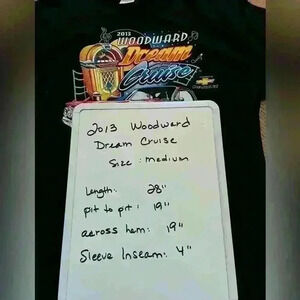 2013
WOODWARD
Dream
Cruise
CHEVROLET
2013 Woodward
Dream Cruise
Size: medium
Length: 28"
pit to pit: 19"
across hem: 19"
Sleeve Inseam: 4"